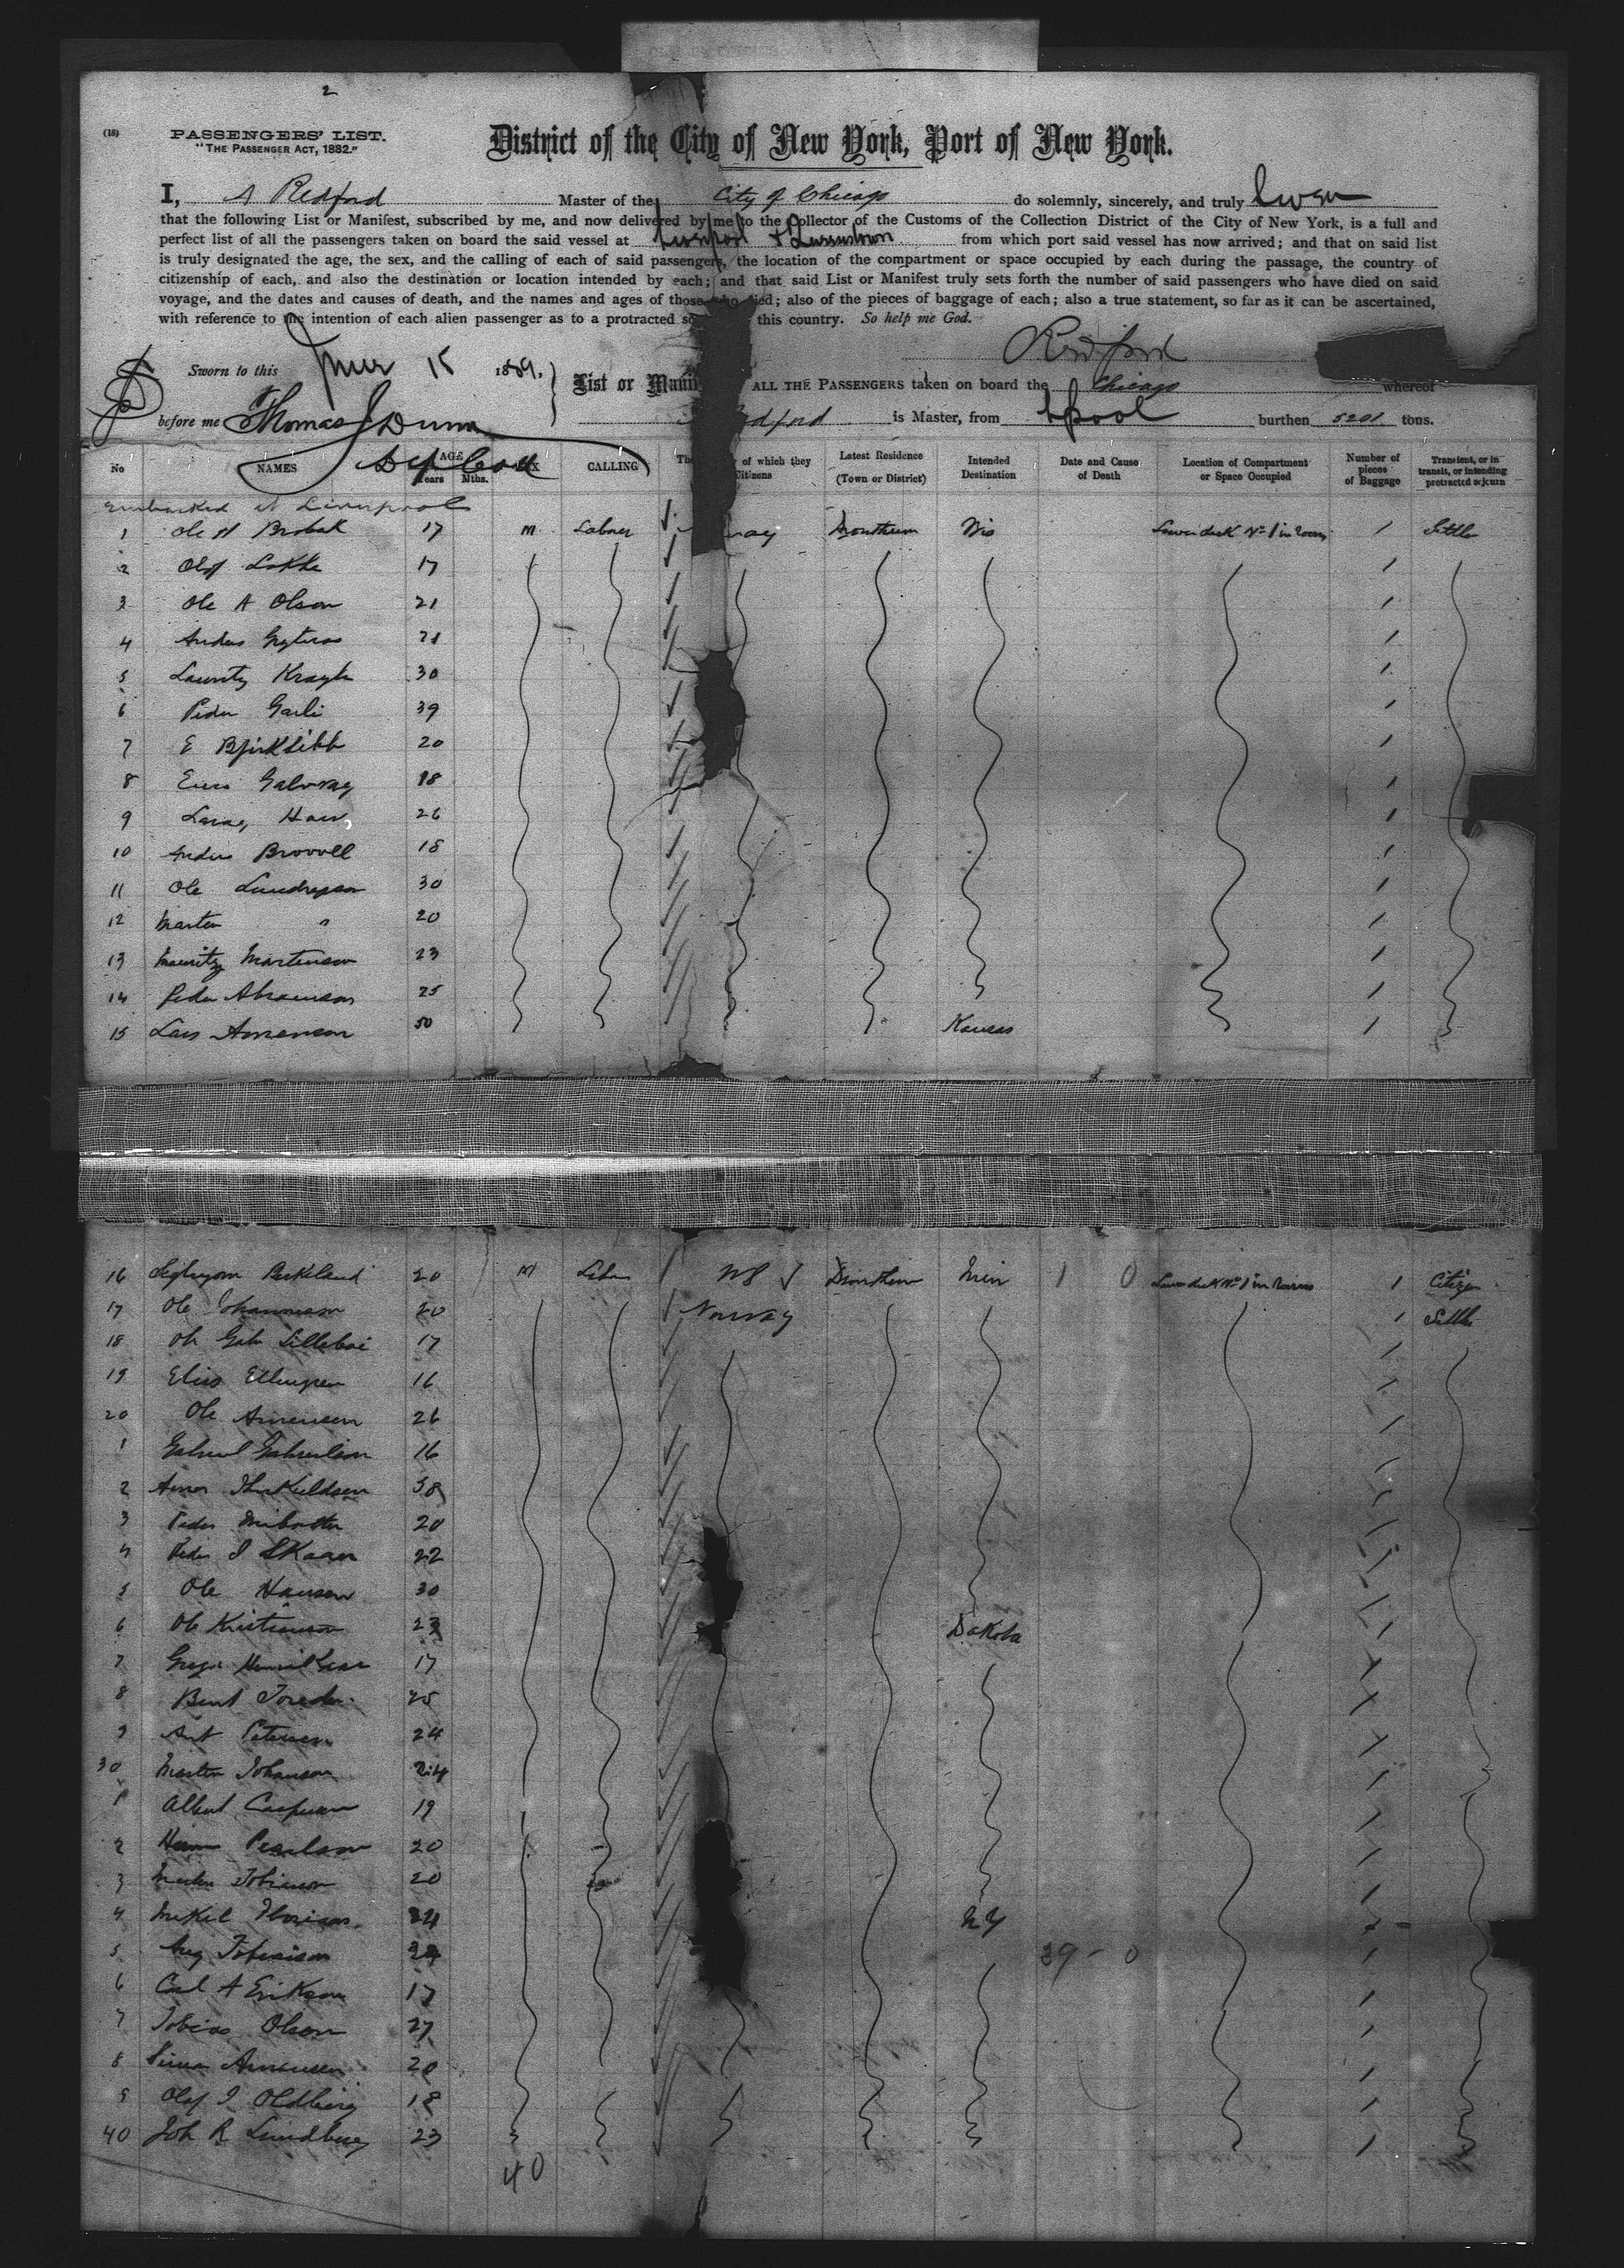 2
(18)
PASSENGERS' LIST.
"THE PASSENGER ACT, 1882."
District of the City of New York, Port of New York.
I, A Redford Master of the City of Chicago do solemnly, sincerely, and truly Swear
that the following List or Manifest, subscribed by me, and now delivered by me to the Collector of the Customs of the Collection District of the City of New York, is a full and
perfect list of all the passengers taken on board the said vessel at Liverpool & Queenstown from which port said vessel has now arrived; and that on said list
is truly designated the age, the sex, and the calling of each of said passengers, the location of the compartment or space occupied by each during the passage, the country of
citizenship of each, and also the destination or location intended by each; and that said List or Manifest truly sets forth the number of said passengers who have died on said
voyage, and the dates and causes of death, and the names and ages of those who died; also of the pieces of baggage of each; also a true statement, so far as it can be ascertained,
with reference to the intention of each alien passenger as to a protracted so this country. So help me God.
Redford
Sworn to this June 15 1889.
List or Mani ALL THE PASSENGERS taken on board the Chicago whereof
before me Thomas J Dunn
edford is Master, from Lpool burthen 5201 tons.
Dep Coll
No NAMES AGE Years Mths. SEX CALLING The of which they Citizens Latest Residence (Town or District) Intended Destination Date and Cause of Death Location of Compartment or Space Occupied Number of pieces of Baggage Transient, or in transit, or intending protracted sojourn
Embarked at Liverpool
1 Ole H Brobak 17 m Labour way Drontheim Wis Lower deck No 1 in Rooms 1 Settler
2 Olof Lokke 17 1
3 Ole A Olson 21 1
4 Anders 21 1
5 Lauritz Kragh 30 1
6 Peder Garli 39 1
7 E 20 1
8 18 1
9 26 1
10 Anders 18 1
11 Ole 30 1
12 Martin " 20 1
13 Mauritz Martinson 23 1
14 Peder Abramson 25 1
15 Lars Amensen 50 Kansas 1
16 Birkeland 20 M Labr US Drontheim Min 1 0 Lower deck No 1 in Rooms 1 Citizen
17 Ole Johannesen 20 Norway 1 Settler
18 Ole Gab Lilleboe 17 1
19 Elias Ellingsen 16 1
20 Ole Amensen 26 1
1 Gabriel Gabrielsen 16 1
2 38 1
3 Peder 20 1
4 Peder J Skaar 22 1
5 Ole Hansen 30 1
6 Ole Kristianson 23 Dakota 1
7 17 1
8 Bent 25 1
9 Petersen 24 1
30 Martin Johanson 24 1
1 Albert Caspersen 19 1
2 20 1
3 Tobiason 20 1
4 Mikel 24 NY 1
5 Aug Tobiaison 24 39 - 0 1
6 Carl A Erikson 17 1
7 Tobias Olson 27 1
8 Simon Amensen 20 1
9 Olof J Oldberg 18 1
40 Joh R Lundberg 23 1
40